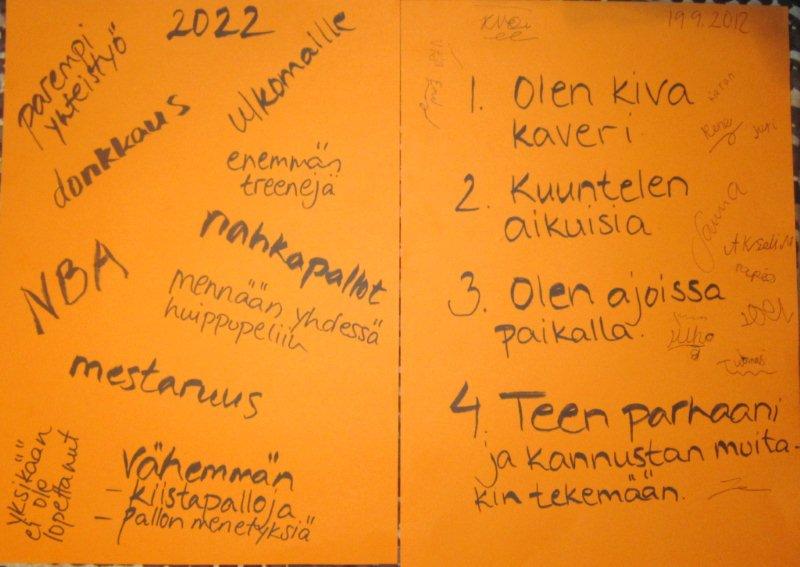 2022
parempi
yhteistyö
ulkomaille
donkkaus
enemmän
treenejä
nahkapallot
NBA
mennään yhdessä
huippupeliin
mestaruus
yksikään
ei ole
lopettanut
vähemmän
- kiistapalloja
- pallon menetyksiä
19.9.2012
1. Olen kiva
kaveri
2. Kuuntelen
aikuisia
3. Olen ajoissa
paikalla.
4. Teen parhaani
ja kannustan muita-
kin tekemään.
Sanna
Joel
Juho